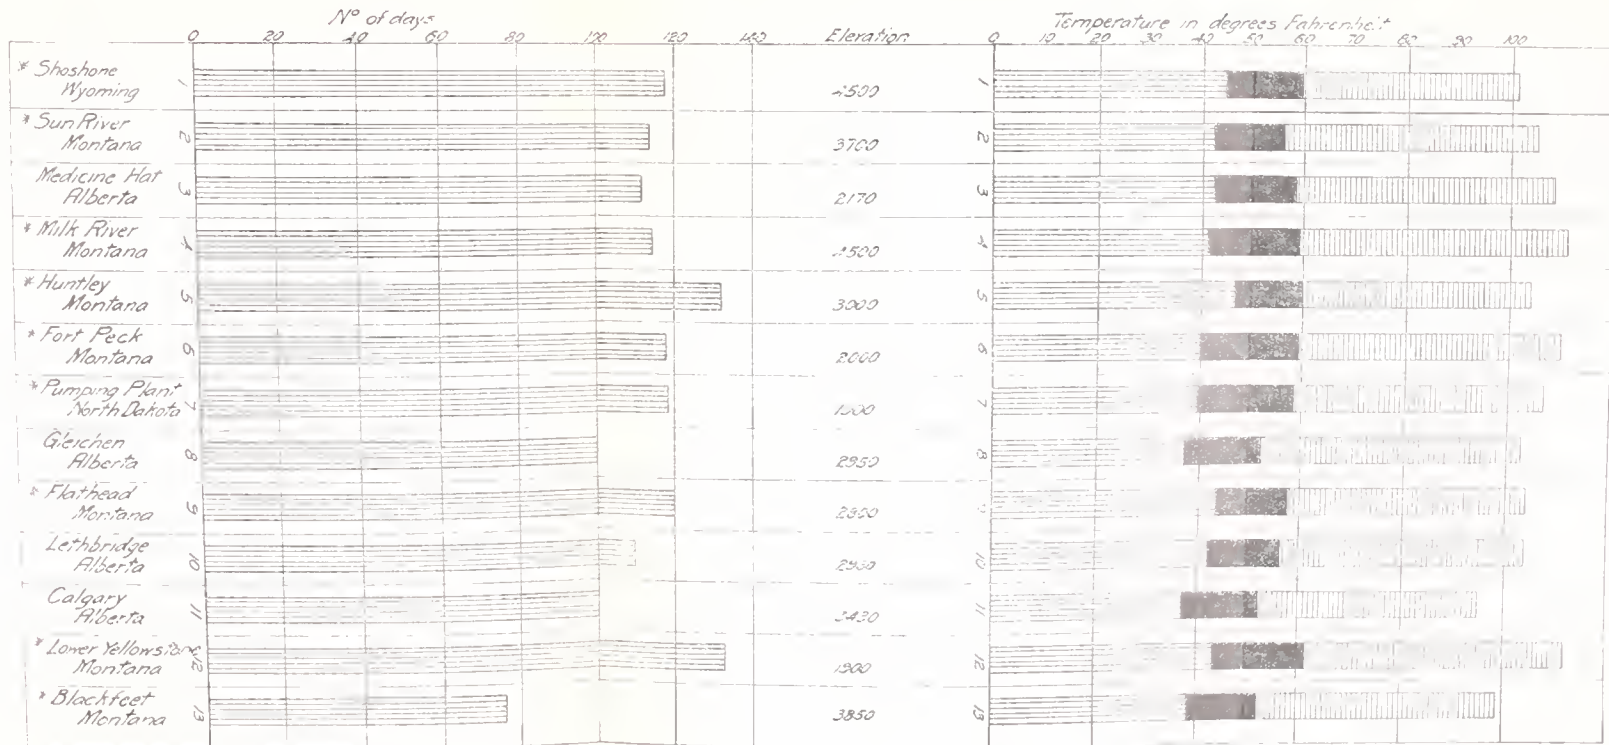 Nº of days
0 20 40 60 80 100 120 140 Elevation
Temperature in degrees Fahrenheit
0 10 20 30 40 50 60 70 80 90 100
* Shoshone
Wyoming
1 4500 1
* Sun River
Montana
2 3700 2
Medicine Hat
Alberta
3 2170 3
* Milk River
Montana
4 4
* Huntley
Montana
5 3000 5
* Fort Peck
Montana
6 2000 6
* Pumping Plant
North Dakota
7 7
Gleichen
Alberta
8 2950 8
* Flathead
Montana
9 9
Lethbridge
Alberta
10 10
Calgary
Alberta
11 11
* Lower Yellowstone
Montana
12 1900 12
* Blackfeet
Montana
13 3850 13